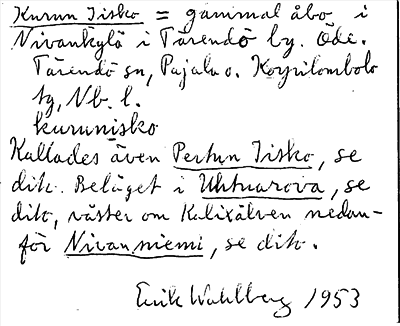 Kurun Iisko = gammal åbo i
Nivankylä i Tärendö by. Öde.
Tärendö sn, Pajala o. Korpilombolo
tg, Nb. l.
kurunisko
Kallades även Pertun Iisko, se
dito. Beläget i Uhtuarova, se
dito, väster om Kalixälven nedan-
för Nivanniemi, se dito.
Erik Wahlberg 1953